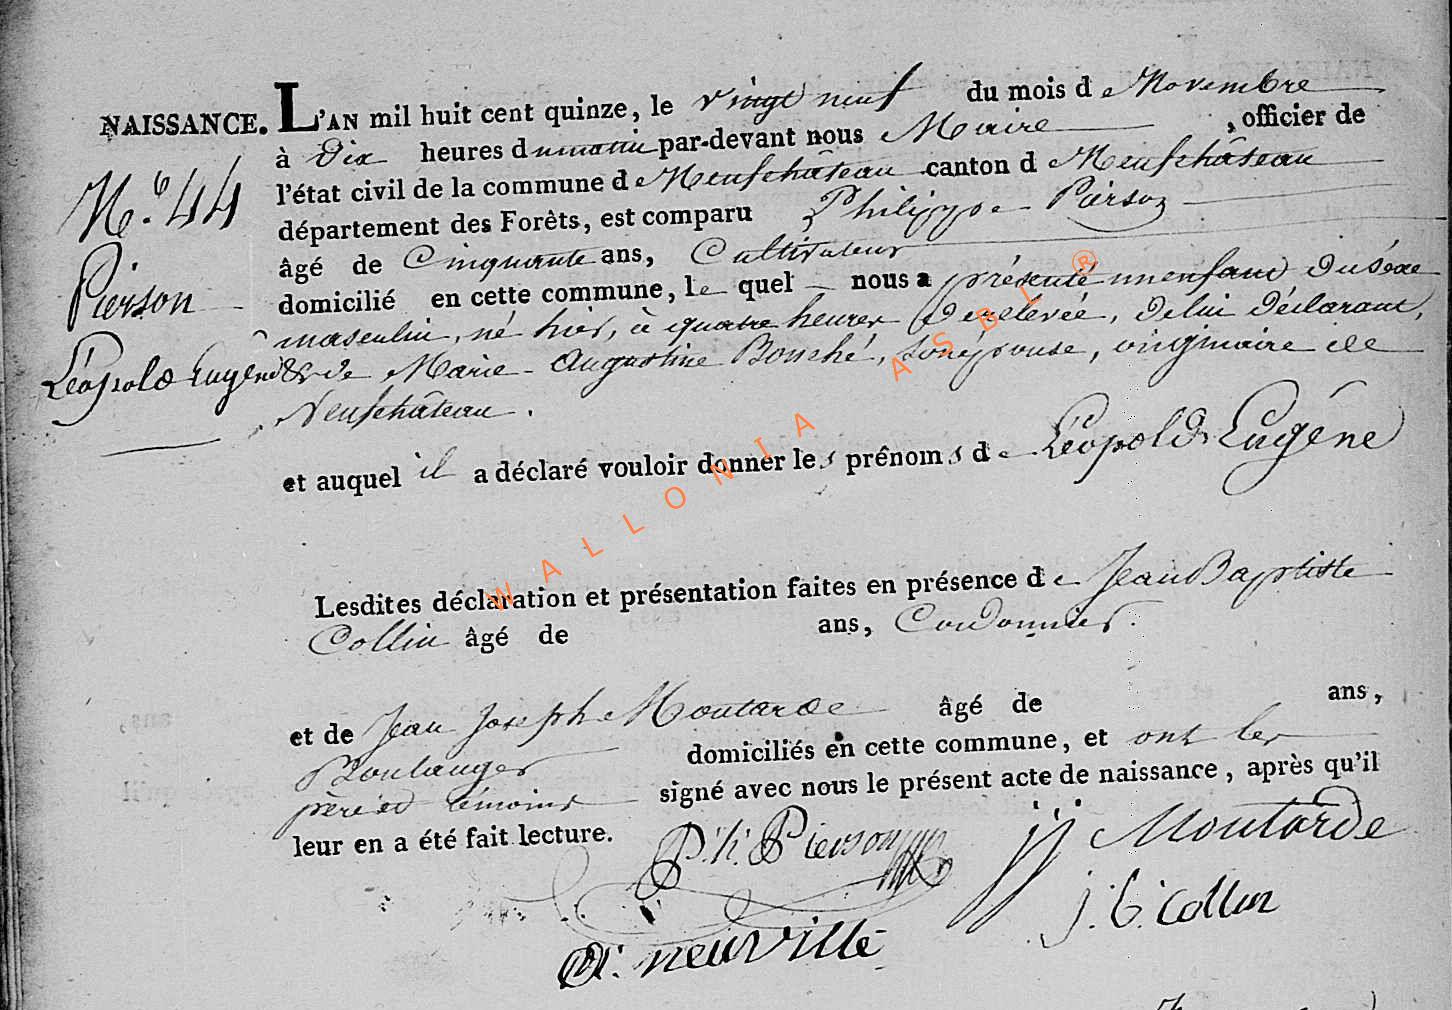 NAISSANCE. L'AN mil huit cent quinze, le vingt neuf du mois de Novembre
à dix heures du matin par-devant nous Maire , officier de
l'état civil de la commune de Neufchâteau canton de Neufchâteau
département des Forêts, est comparu Philippe Pierson
âgé de Cinquante ans, Cultivateur
domicilié en cette commune, le quel nous a présenté un enfant du sexe
masculin, né hier, à quatre heures de relevée, de lui déclarant,
& de Marie-Augustine Bouché, son épouse, originaire de
Neufchâteau.
N.o 44
Pierson
Léopold Eugène
et auquel il a déclaré vouloir donner les prénoms de Léopold Eugène
Lesdites déclaration et présentation faites en présence de Jean Baptiste
Collin âgé de ans, Cordonnier.
et de Jean Joseph Moutarde âgé de ans,
Boulanger domiciliés en cette commune, et ont les
père et témoins signé avec nous le présent acte de naissance, après qu'il
leur en a été fait lecture.
Ph. Pierson
jj Moutarde
j. b. Collin
neuville
WALLONIA ASBL ®